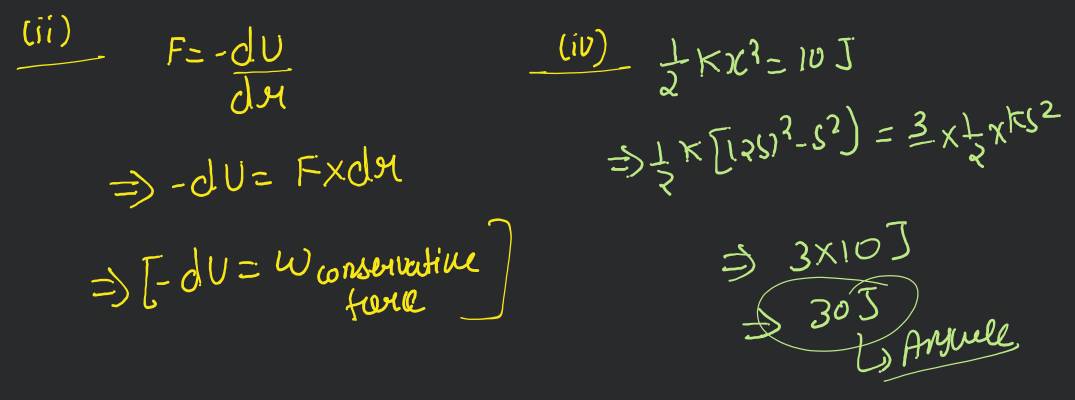 (ii)
F = -dU/dr
⇒ -dU = F×dr
⇒ [-dU = W conservative force]
(iv)
1/2 Kx² = 10 J
⇒ 1/2 K[(2S)² - S²) = 3 × 1/2 × KS²
⇒ 3×10 J
⇒ 30 J
↳ Answer